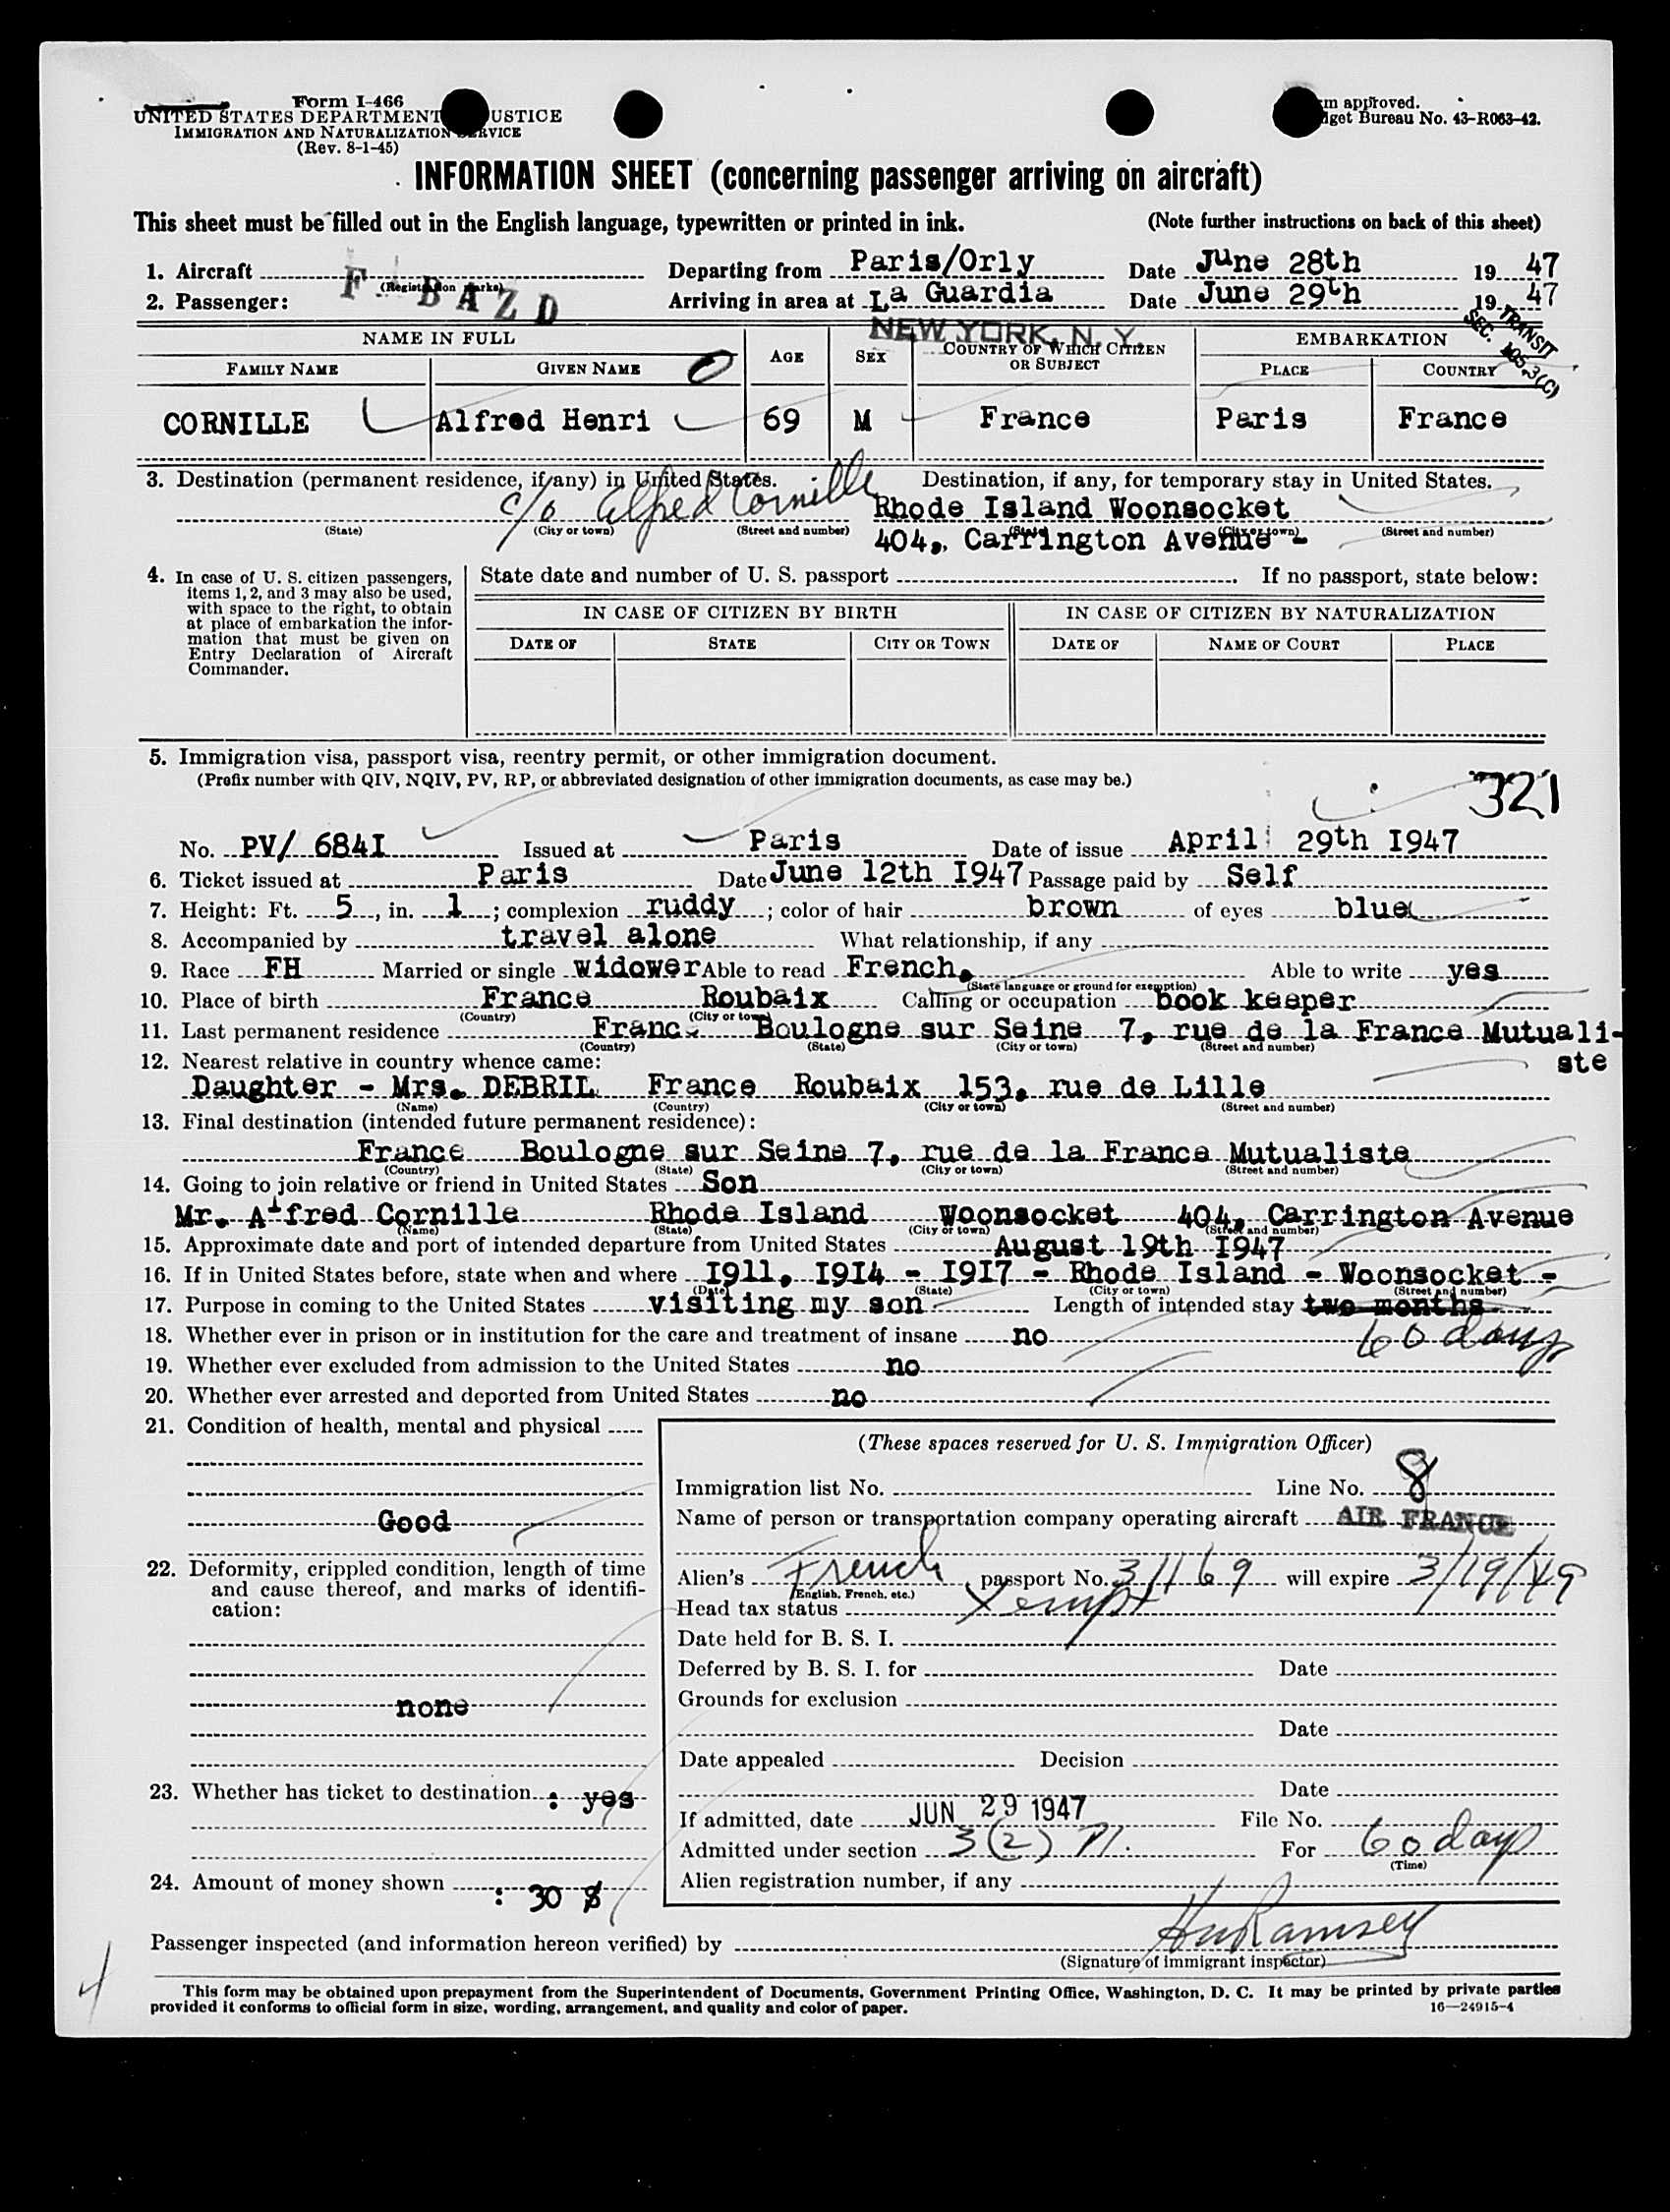 Form I-466
UNITED STATES DEPARTMENT USTICE
IMMIGRATION AND NATURALIZATION RVICE
(Rev. 8-1-45)
m approved.
get Bureau No. 43-R063-42.
INFORMATION SHEET (concerning passenger arriving on aircraft)
This sheet must be filled out in the English language, typewritten or printed in ink. (Note further instructions on back of this sheet)
1. Aircraft F BAZD (Registration marks) Departing from Paris/Orly Date June 28th 19 47
2. Passenger: Arriving in area at La Guardia Date June 29th 19 47
NEW YORK, N. Y.
TRANSIT
SEC. 105.3(C)
NAME IN FULL AGE SEX COUNTRY OF WHICH CITIZEN OR SUBJECT EMBARKATION
FAMILY NAME GIVEN NAME PLACE COUNTRY
CORNILLE Alfred Henri 69 M France Paris France
3. Destination (permanent residence, if any) in United States. Destination, if any, for temporary stay in United States.
c/o Alfred Cornille Rhode Island Woonsocket
(State) (City or town) (Street and number) (State) (City or town) (Street and number)
404,. Carrington Avenue -
4. In case of U. S. citizen passengers, items 1, 2, and 3 may also be used, with space to the right, to obtain at place of embarkation the information that must be given on Entry Declaration of Aircraft Commander.
State date and number of U. S. passport . If no passport, state below:
IN CASE OF CITIZEN BY BIRTH IN CASE OF CITIZEN BY NATURALIZATION
DATE OF STATE CITY OR TOWN DATE OF NAME OF COURT PLACE
5. Immigration visa, passport visa, reentry permit, or other immigration document.
(Prefix number with QIV, NQIV, PV, RP, or abbreviated designation of other immigration documents, as case may be.)
321
No. PV/ 684I Issued at Paris Date of issue April 29th I947
6. Ticket issued at Paris Date June 12th I947 Passage paid by Self
7. Height: Ft. 5, in. 1; complexion ruddy; color of hair brown of eyes blue
8. Accompanied by travel alone What relationship, if any
9. Race FH Married or single widower Able to read French, Able to write yes
(State language or ground for exemption)
10. Place of birth France Roubaix Calling or occupation book keeper
(Country) (City or town)
11. Last permanent residence Franc. Boulogne sur Seine 7, rue de la France Mutuali-
ste
(Country) (State) (City or town) (Street and number)
12. Nearest relative in country whence came:
Daughter - Mrs. DEBRIL France Roubaix 153, rue de Lille
(Name) (Country) (City or town) (Street and number)
13. Final destination (intended future permanent residence):
France Boulogne sur Seine 7, rue de la France Mutualiste
(Country) (State) (City or town) (Street and number)
14. Going to join relative or friend in United States Son
Mr. Alfred Cornille Rhode Island Woonsocket 404, Carrington Avenue
(Name) (State) (City or town) (Street and number)
15. Approximate date and port of intended departure from United States August 19th I947
16. If in United States before, state when and where I911, I914 - I9I7 - Rhode Island - Woonsocket -
(Date) (State) (City or town) (Street and number)
17. Purpose in coming to the United States visiting my son - Length of intended stay two months
60 days
18. Whether ever in prison or in institution for the care and treatment of insane no
19. Whether ever excluded from admission to the United States no
20. Whether ever arrested and deported from United States no
21. Condition of health, mental and physical
Good
22. Deformity, crippled condition, length of time and cause thereof, and marks of identification:
none
23. Whether has ticket to destination : yes
24. Amount of money shown : 30 $
(These spaces reserved for U. S. Immigration Officer)
Immigration list No. Line No. 8
Name of person or transportation company operating aircraft AIR FRANCE
Alien's French passport No. 31169 will expire 3/19/49
(English, French, etc.)
Head tax status Xempt
Date held for B. S. I.
Deferred by B. S. I. for Date
Grounds for exclusion
Date
Date appealed Decision
Date
If admitted, date JUN 29 1947 File No.
Admitted under section 3(2) Pl. For 60 days
(Time)
Alien registration number, if any
Passenger inspected (and information hereon verified) by HW Ramsey
(Signature of immigrant inspector)
This form may be obtained upon prepayment from the Superintendent of Documents, Government Printing Office, Washington, D. C. It may be printed by private parties
provided it conforms to official form in size, wording, arrangement, and quality and color of paper. 16—24915-4